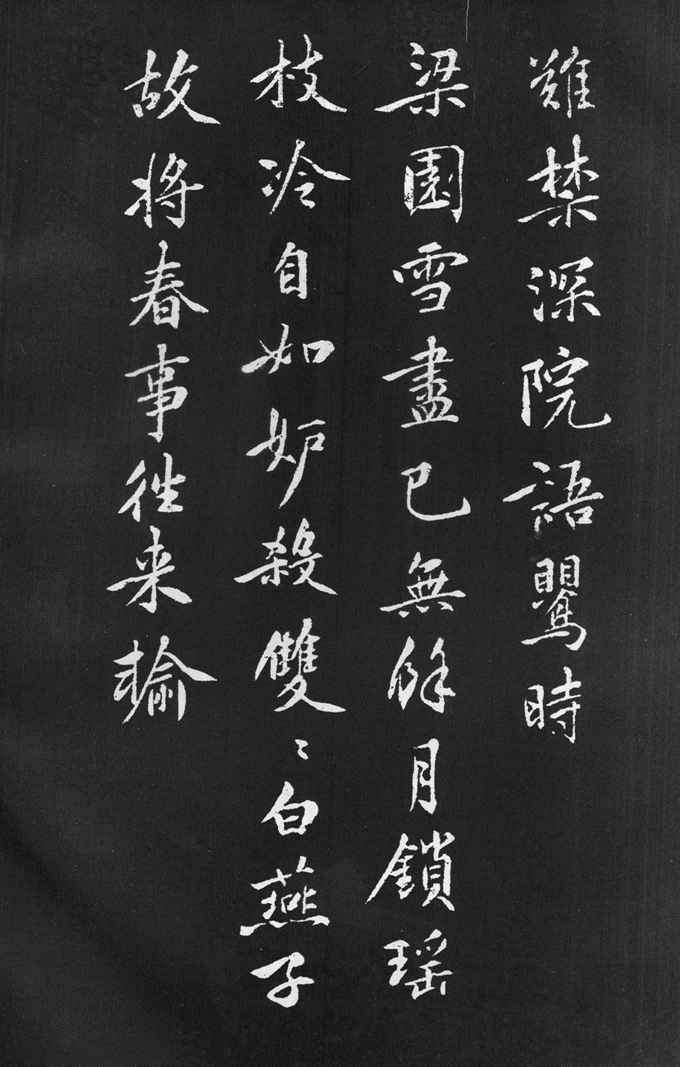 難禁深院語鸎時
梁園雪盡已無餘月鎖瑤
枝冷自如妒殺雙〻白燕子
故將春事徃来輸